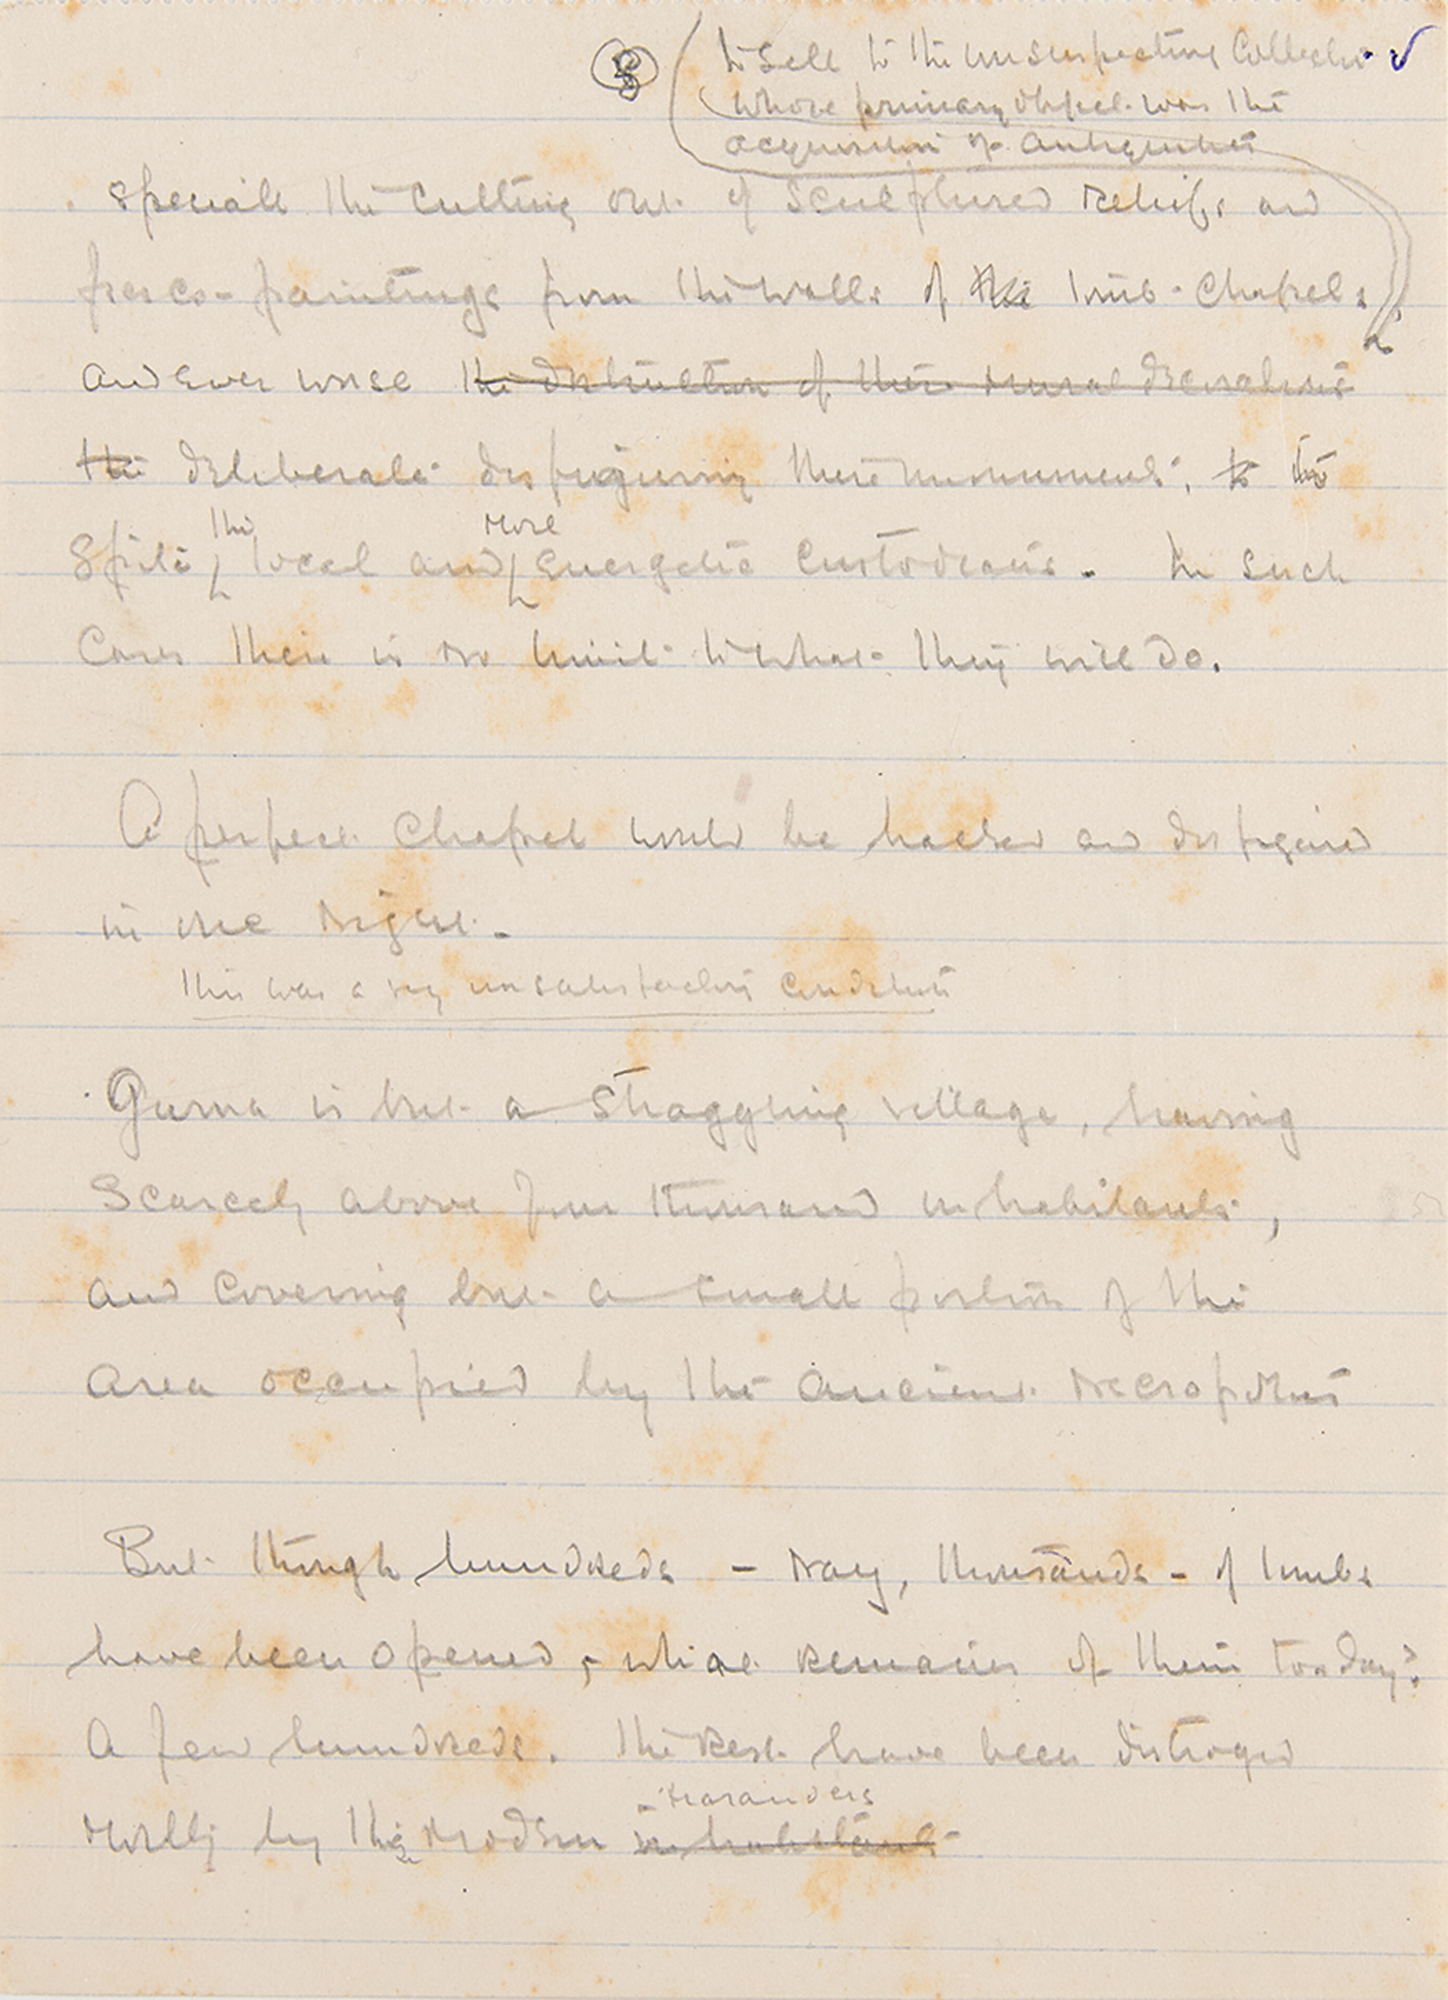 to sell to the unsuspecting Collector
whose primary object was the
acquisition of antiquities
specially the cutting out of sculptured reliefs and
fresco-paintings from the walls of the tomb-chapels,
and ever worse the destruction of these mural decorations
the deliberate disfiguring these monuments, to
the more
spite local and energetic custodians. In such
cases there is no limit to what they will do.
A perfect chapel would be hacked and disfigured
in one night.
This was a very unsatisfactory condition
Gurna is but a straggling village, having
scarcely above four thousand inhabitants,
and covering but a small portion of the
area occupied by the ancient necropolis
But though hundreds - nay, thousands - of tombs
have been opened, what remains of them today?
A few hundreds. The rest have been distroyed
marauders
mostly by the modern inhabitants